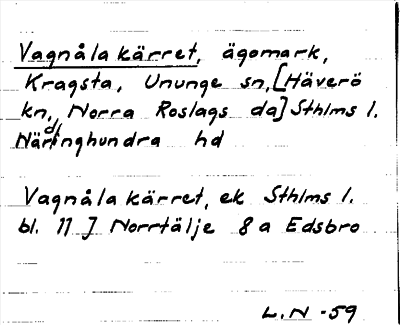 Vagnåla kärret, ägomark,
Kragsta, Ununge sn, [Häverö
kn, Norra Roslags da] Sthlms l.
Närdinghundra hd
Vagnåla kärret, ek Sthlms l.
bl. 11 J Norrtälje 8a Edsbro
L.N -59